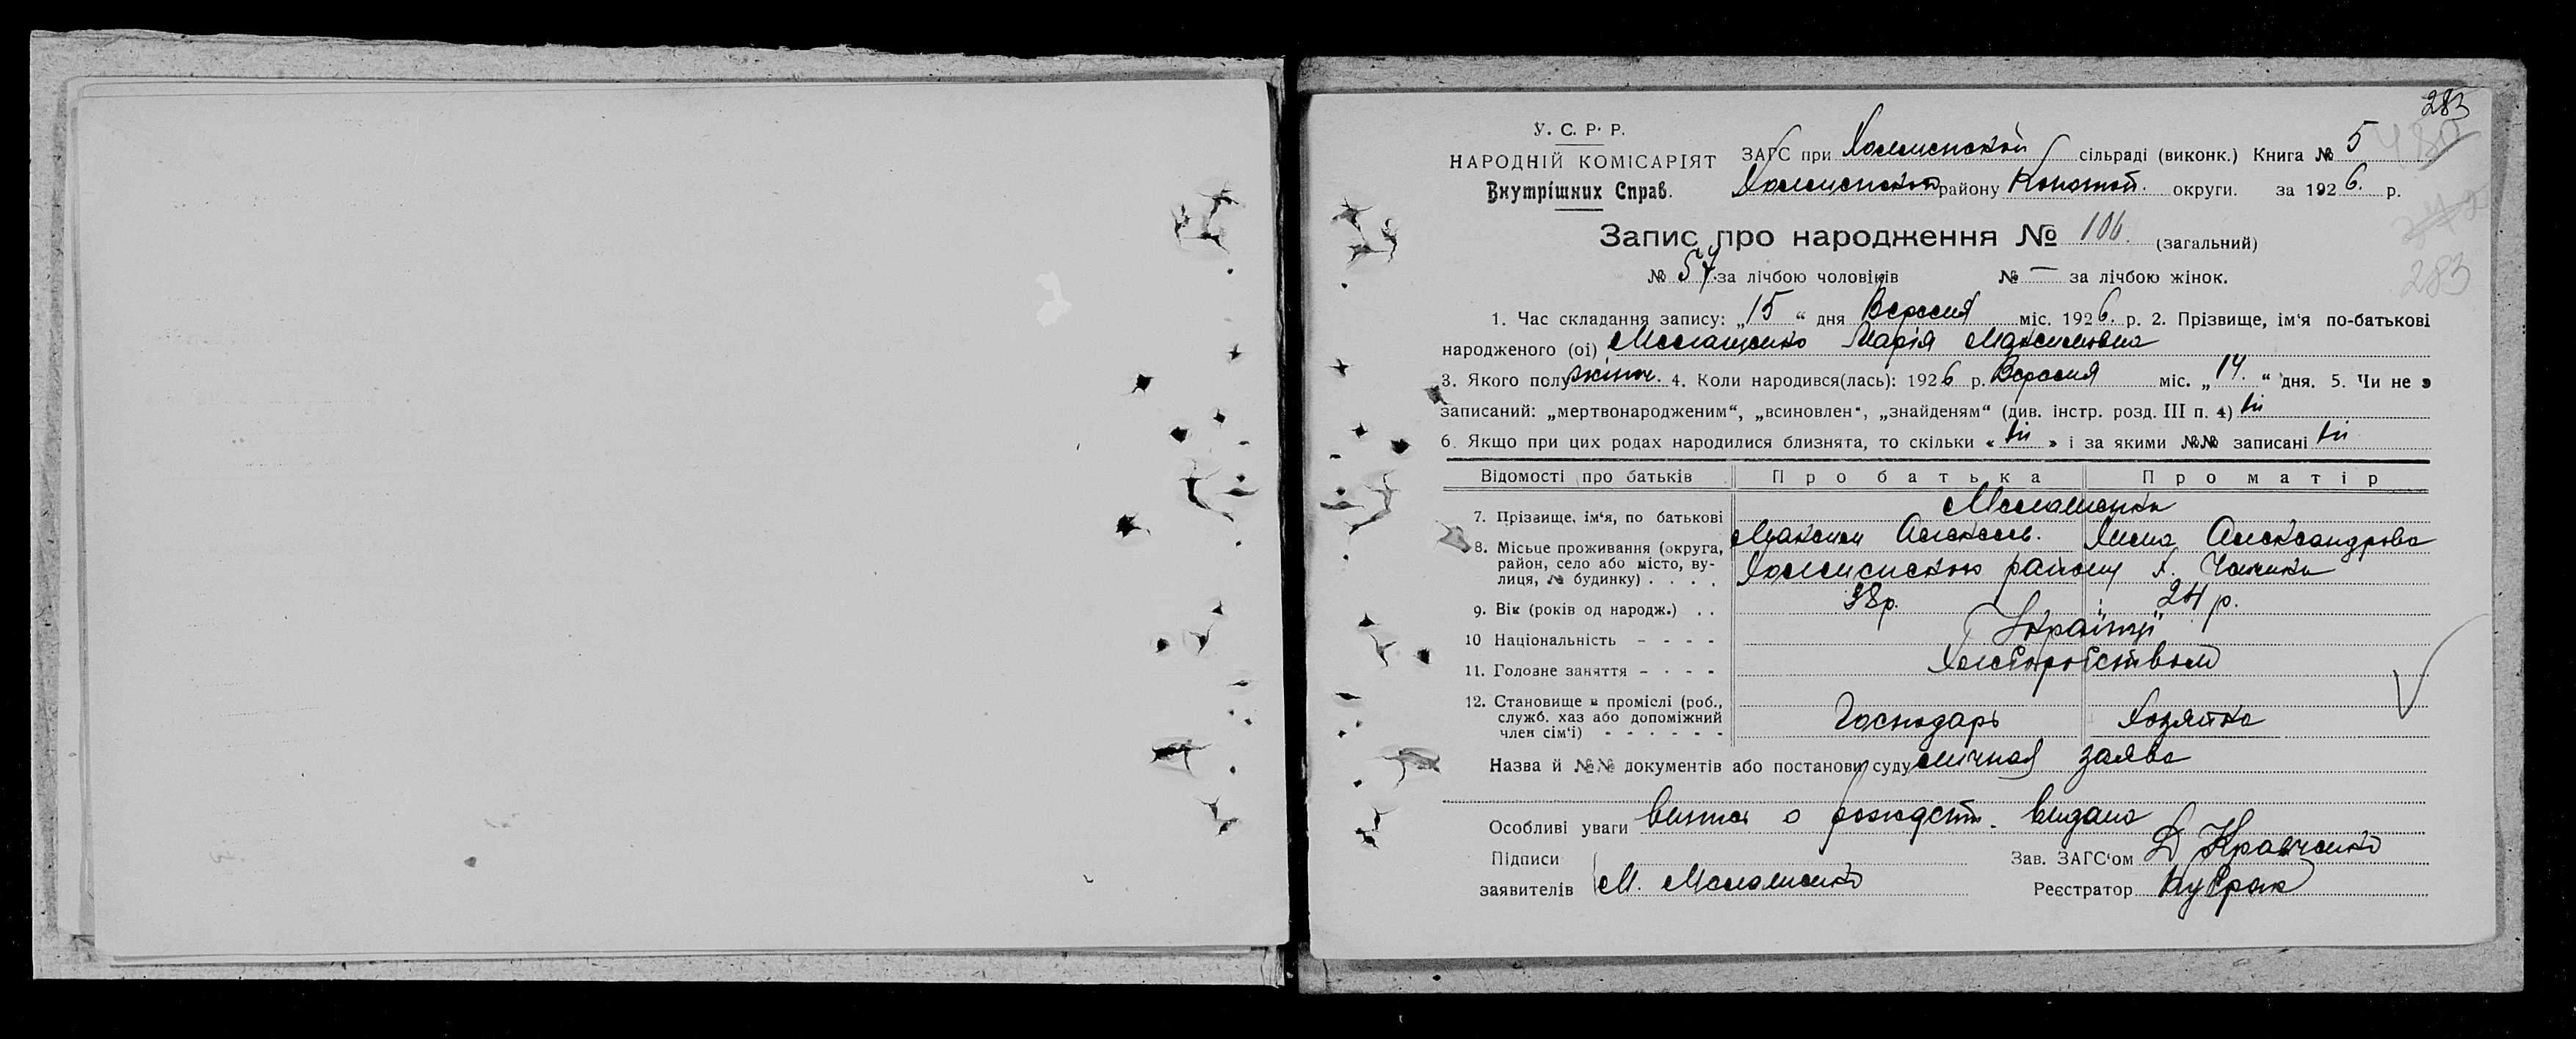 283
У. С. Р. Р.
НАРОДНІЙ КОМІСАРІЯТ
Внутрішних Справ.
ЗАГС при Холминской сільраді (виконк.) Книга № 5
Холминского району Конотоп. округи. за 1926. р.
480
Запис про народження № 106. (загальний)
№ 57 за лічбою чоловіків № — за лічбою жінок.
283
1. Час складання запису: „15“ дня Вересня міс. 1926. р. 2. Прізвище, ім'я по-батькові
народженого (ої) Марія Максимовна
3. Якого полу жіноч. 4. Коли народився(лась): 1926 р. Вересня міс. „14.“ дня. 5. Чи не є
записаний: „мертвонародженим“, „всиновлен“, „знайденям“ (див. інстр. розд. III п. 4) ні
6. Якщо при цих родах народилися близнята, то скільки « ні » і за якими №№ записані ні
Відомості про батьків Про батька Про матір
7. Прізвище, ім'я, по батькові
Максим Алексеев. Александрова
8. Місьце проживання (округа,
район, село або місто, ву-
лиця, № будинку) . . . .
Холминского району х.
9. Вік (років од народж.) . . 38р. 24 р.
10 Національність - - - - Українці
11. Головне заняття - - - - Хлеборобством
12. Становище в промислі (роб.,
служб. хаз або допоміжний
член сім'ї) - - - - - -
Господарь Хозяйка
Назва й №№ документів або постанови суду личная заява
Особливі уваги випись о рождєни. видана
Підписи
заявителів М.
Зав. ЗАГС'ом Д Кравченко
Реєстратор Кубрак